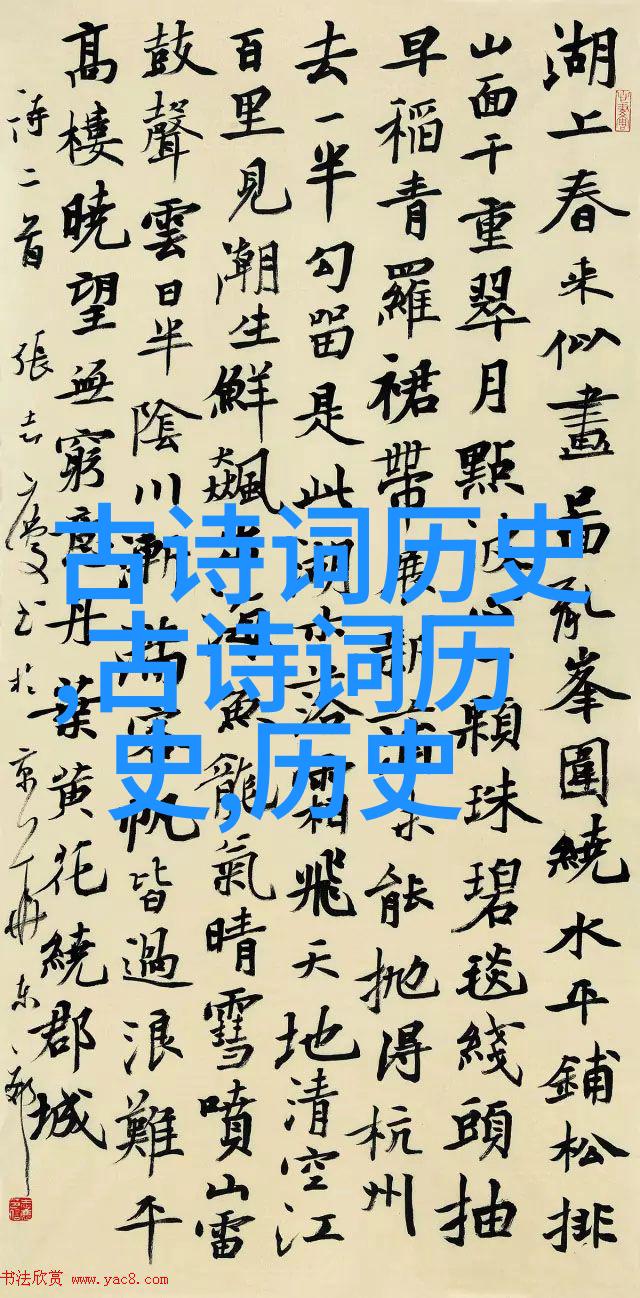 湖上春来似畫啚亂峯圍繞水平鋪松排
山面千重翠月點波心一顆珠碧毯綫頭抽
早稻青羅裙帶展新蒲未能抛得杭州
去一半勾留是此湖水落霜飛天地清空江
百里見潮生鮮飆出海魚龍氣晴雪噴山雷
鼓聲雲日半陰川漸滿客帆皆過浪難平
高樓曉望無窮意丹葉黄花繞郡城
詩二首 張志慶书於京
古诗词历史
,古诗词历
史,历史
书法欣赏 www.yac8.com